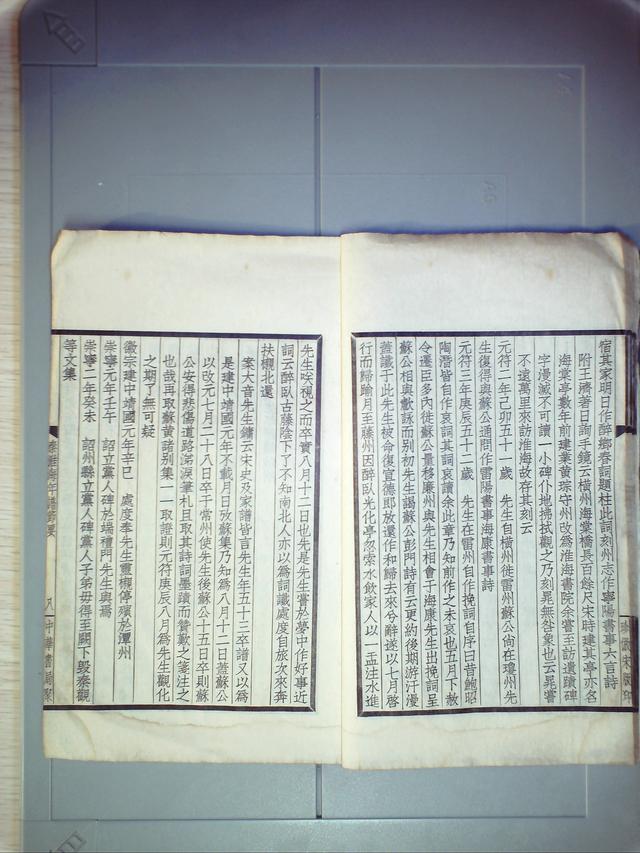 宿其家明日作醉鄉春詞題柱此詞刻州志作寧陽書事六言詩
附王濟著日詢手鏡云橫州海棠橋長百餘尺宋時建其亭亦名
海棠亭數年前建業黃琮守州改為淮海書院余嘗至訪遺蹟碑
字漫滅不可讀一小碑仆地拂拭觀之乃刻晁無咎象也云晁嘗
不遠萬里來訪淮海故存其刻云
元符二年己卯五十一歲 先生自橫州徙雷州蘇公尙在瓊州先
生復得與蘇公通問作雷陽書事海康書事詩
元符三年庚辰五十二歲 先生在雷州自作挽詞自序曰昔鮑昭
陶潛皆自作哀詞其詞哀讀余此章乃知前作之未哀也五月下赦
令遷臣多內徙蘇公量移廉州與先生相會于海康先生出挽詞呈
蘇公相與歡詠而別初先生謁蘇公彭門詩有云更約後期游汗漫
蓋讖于此先生被命復宣德郎放還作和歸去來兮辭遂以七月啓
行而歸踰月至藤州因醉臥光化亭忽索水飲家人以一盂注水進
先生笑視之而卒實八月十二日也先是先生嘗於夢中作好事近
詞云醉臥古藤陰下了不知南北人亦以為詞讖處度自旅次來奔
扶櫬北還
案大音先生鏞云宋史及家譜皆言先生年五十三卒譜又以為
是建中靖國元年不載月日攷蘇集乃知為八月十二日蓋蘇公
以改元七月二十八日卒于常州使先生後蘇公十五日卒則蘇
公安得悲傷道路涕淚筆札且取其詩詞墨蹟而贊歎之箋注之
也哉再取蘇黃諸別集一一取證則元符庚辰八月為先生觀化
之期了無可疑
徽宗建中靖國元年辛巳 處度奉先生靈櫬停殯於潭州
崇寧元年壬午 詔立黨人碑於端禮門先生與焉
崇寧二年癸未 詔州縣立黨人碑黨人子弟毋得至闕下毀秦觀
等文集
八 中華書局聚